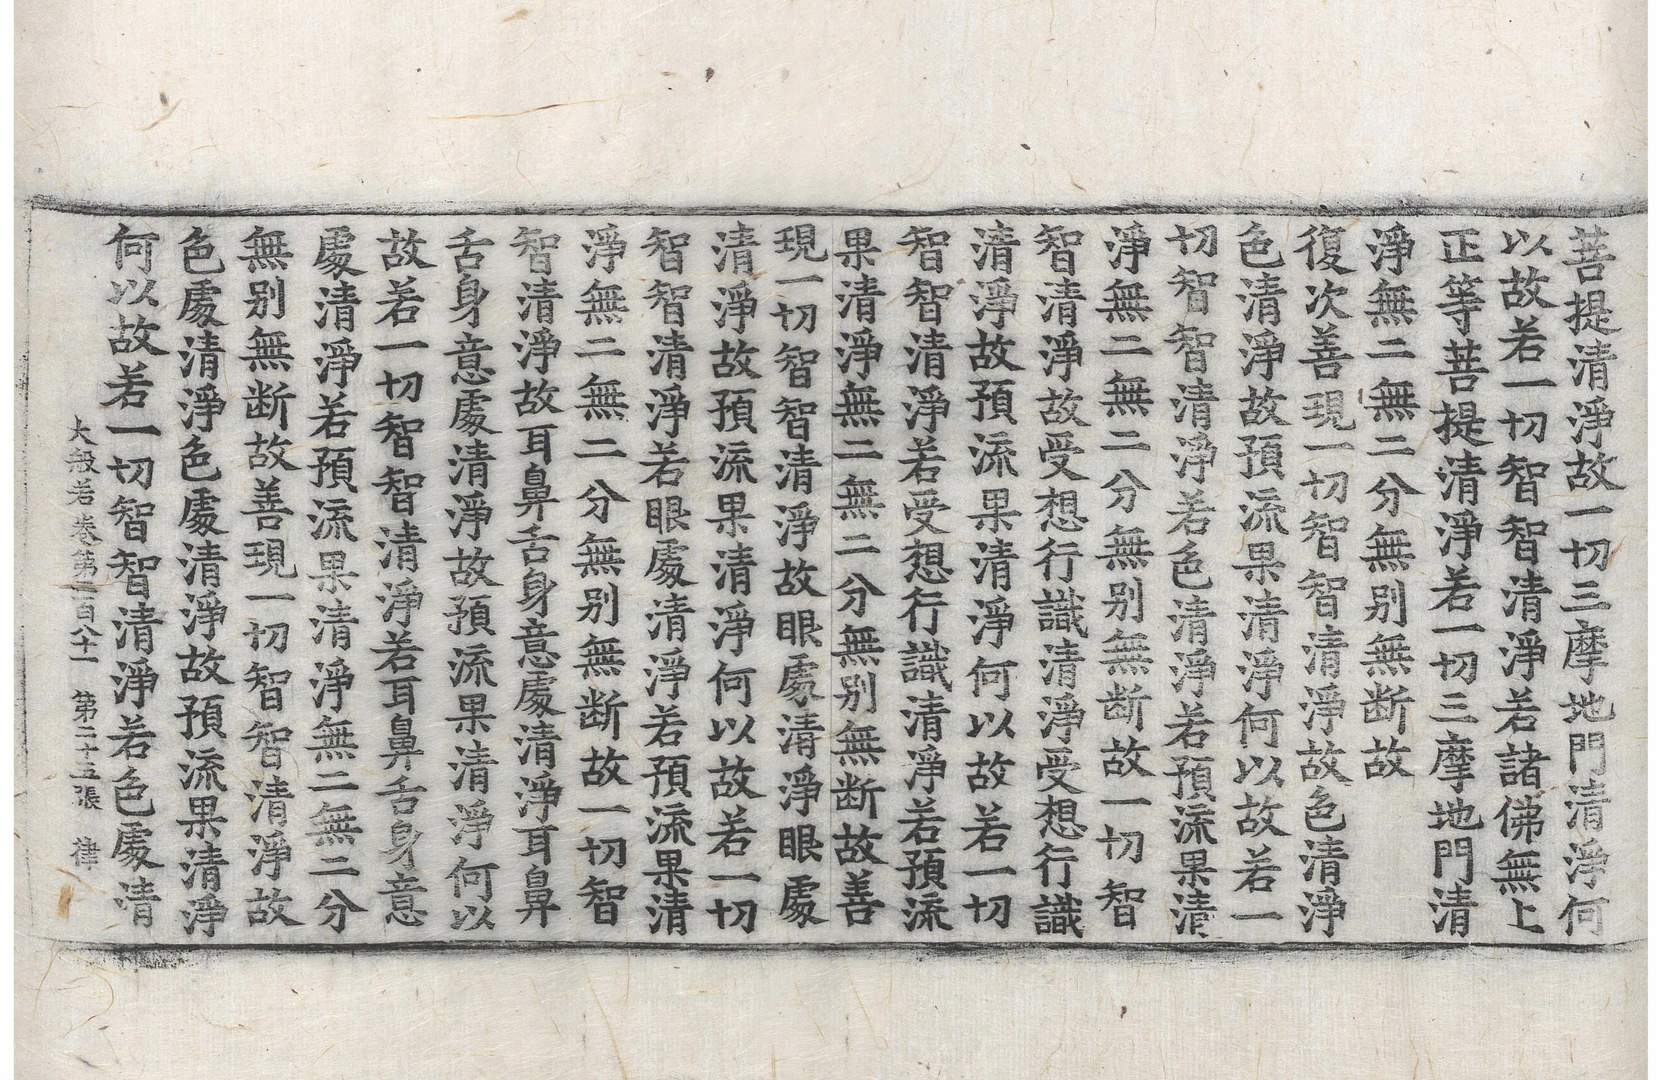 菩提清淨故一切三摩地門清淨何
以故若一切智智清淨若諸佛無上
正等菩提清淨若一切三摩地門清
淨無二無二分無别無断故
復次善現一切智智清淨故色清淨
色清淨故預流果清淨何以故若一
切智智清淨若色清淨若預流果清
淨無二無二分無别無断故一切智
智清淨故受想行識清淨受想行識
清淨故預流果清淨何以故若一切
智智清淨若受想行識清淨若預流
果清淨無二無二分無别無断故善
現一切智智清淨故眼處清淨眼處
清淨故預流果清淨何以故若一切
智智清淨若眼處清淨若預流果清
淨無二無二分無别無断故一切智
智清淨故耳鼻舌身意處清淨耳鼻
舌身意處清淨故預流果清淨何以
故若一切智智清淨若耳鼻舌身意
處清淨若預流果清淨無二無二分
無别無断故善現一切智智清淨故
色處清淨色處清淨故預流果清淨
何以故若一切智智清淨若色處清
大般若卷第二百六十一 第二十五張 律